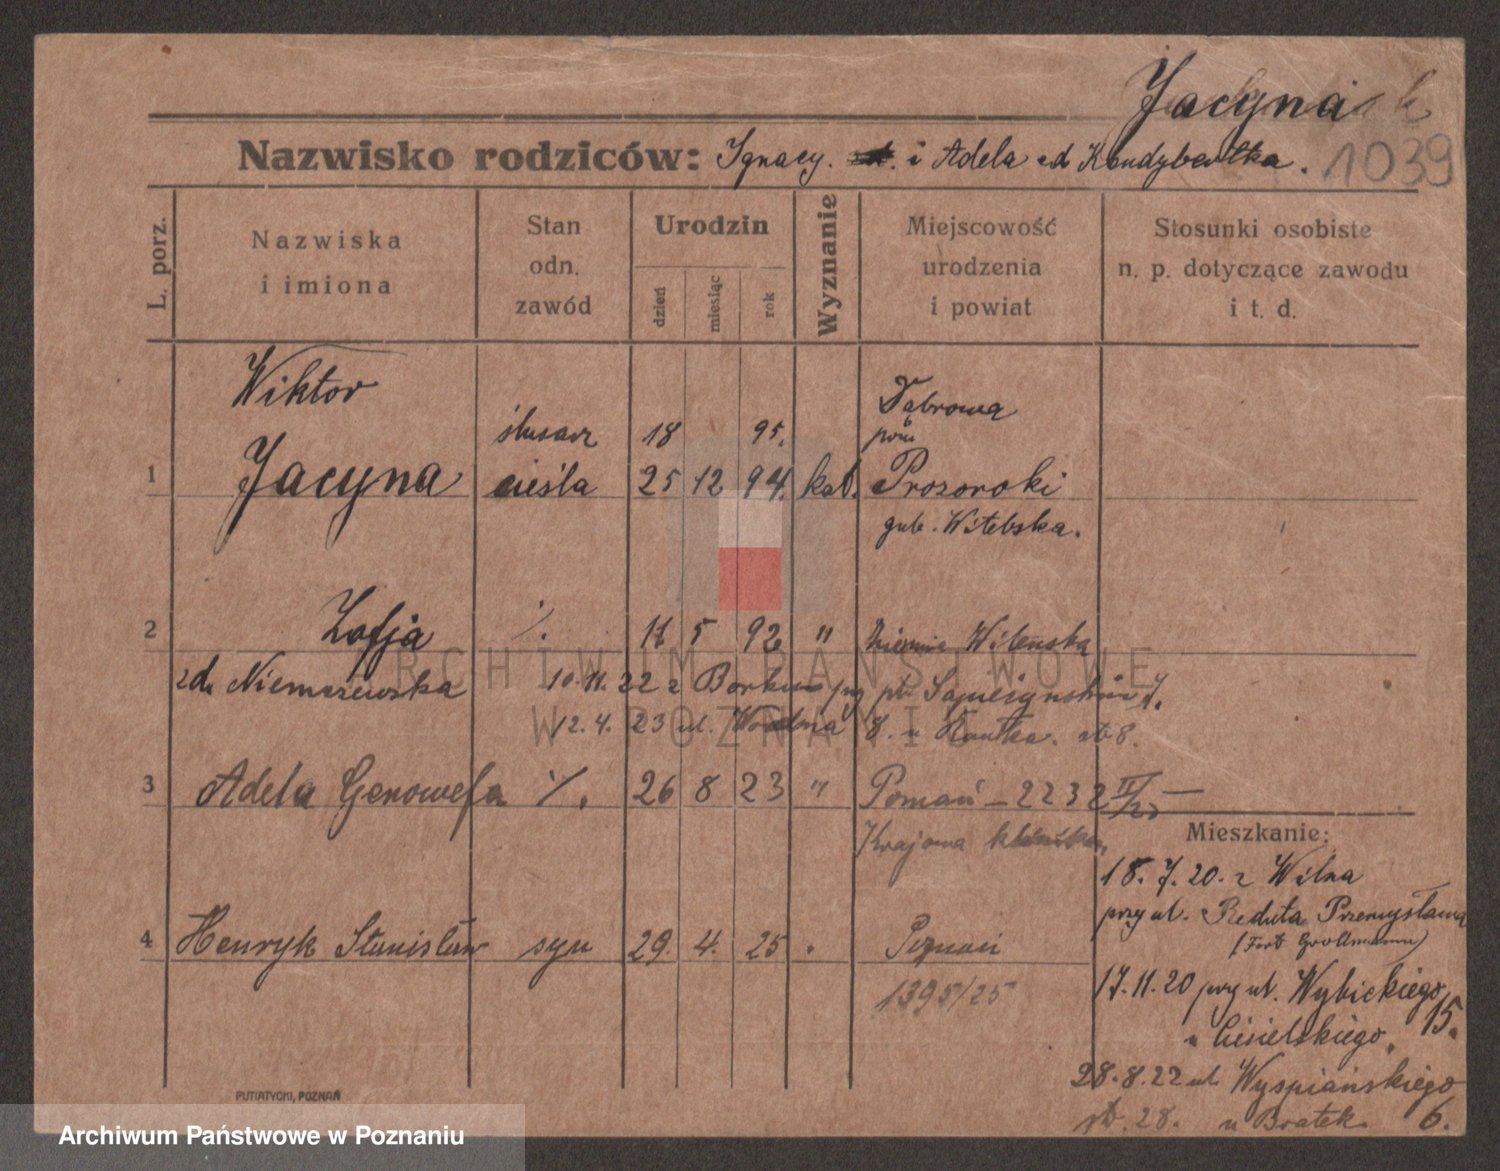 Jacyna
Nazwisko rodziców: Ignacy. i Adela zd Kundybentka. 1039
L. porz.
Nazwiska i imiona
Stan odn. zawód
Urodzin
dzień
miesiąc
rok
Wyznanie
Miejscowość urodzenia i powiat
Stosunki osobiste n. p. dotyczące zawodu i t. d.
Wiktor
Dąbrowa
ślusarz 18 95. pow
1 Jacyna cieśla 25 12 94. kat. Prozoroki
gub. Witebska.
2 Zofja %. 11 5 92 " Wileńska
zd. Niemszewska 10.11.22 z Borku
12.4. 23 ul. Wodna 8. u Kantka.
3 Adela Genowefa %. 26 8 23 " Poznań – 2232
Krajowa klinika.
Mieszkanie:
18.7.20. z Wilna
przy ul. Reduta Przemysława
(Fort Grollmann)
4 Henryk Stanisław syn 29. 4. 25 " Poznań
1395/25
17.11.20 przy ul. Wybickiego 15.
u Cisielskiego.
28.8.22 ul. Wyspiańskiego 6.
u Bratek.
PUTIATYCKI, POZNAŃ
ARCHIWUM PAŃSTWOWE
W POZNANIU
Archiwum Państwowe w Poznaniu